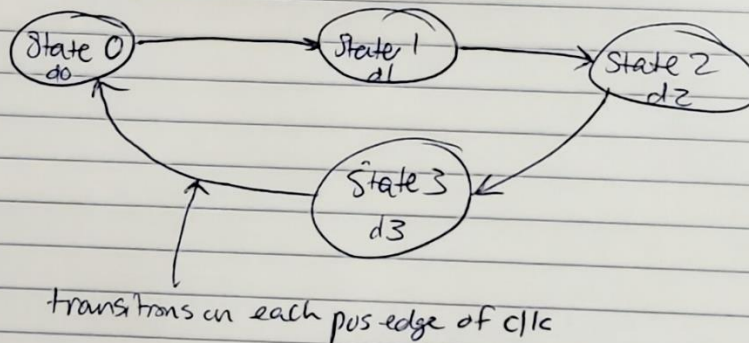 State 0
d0
State 1
d1
State 2
d2
State 3
d3
transitions on each pos edge of clk